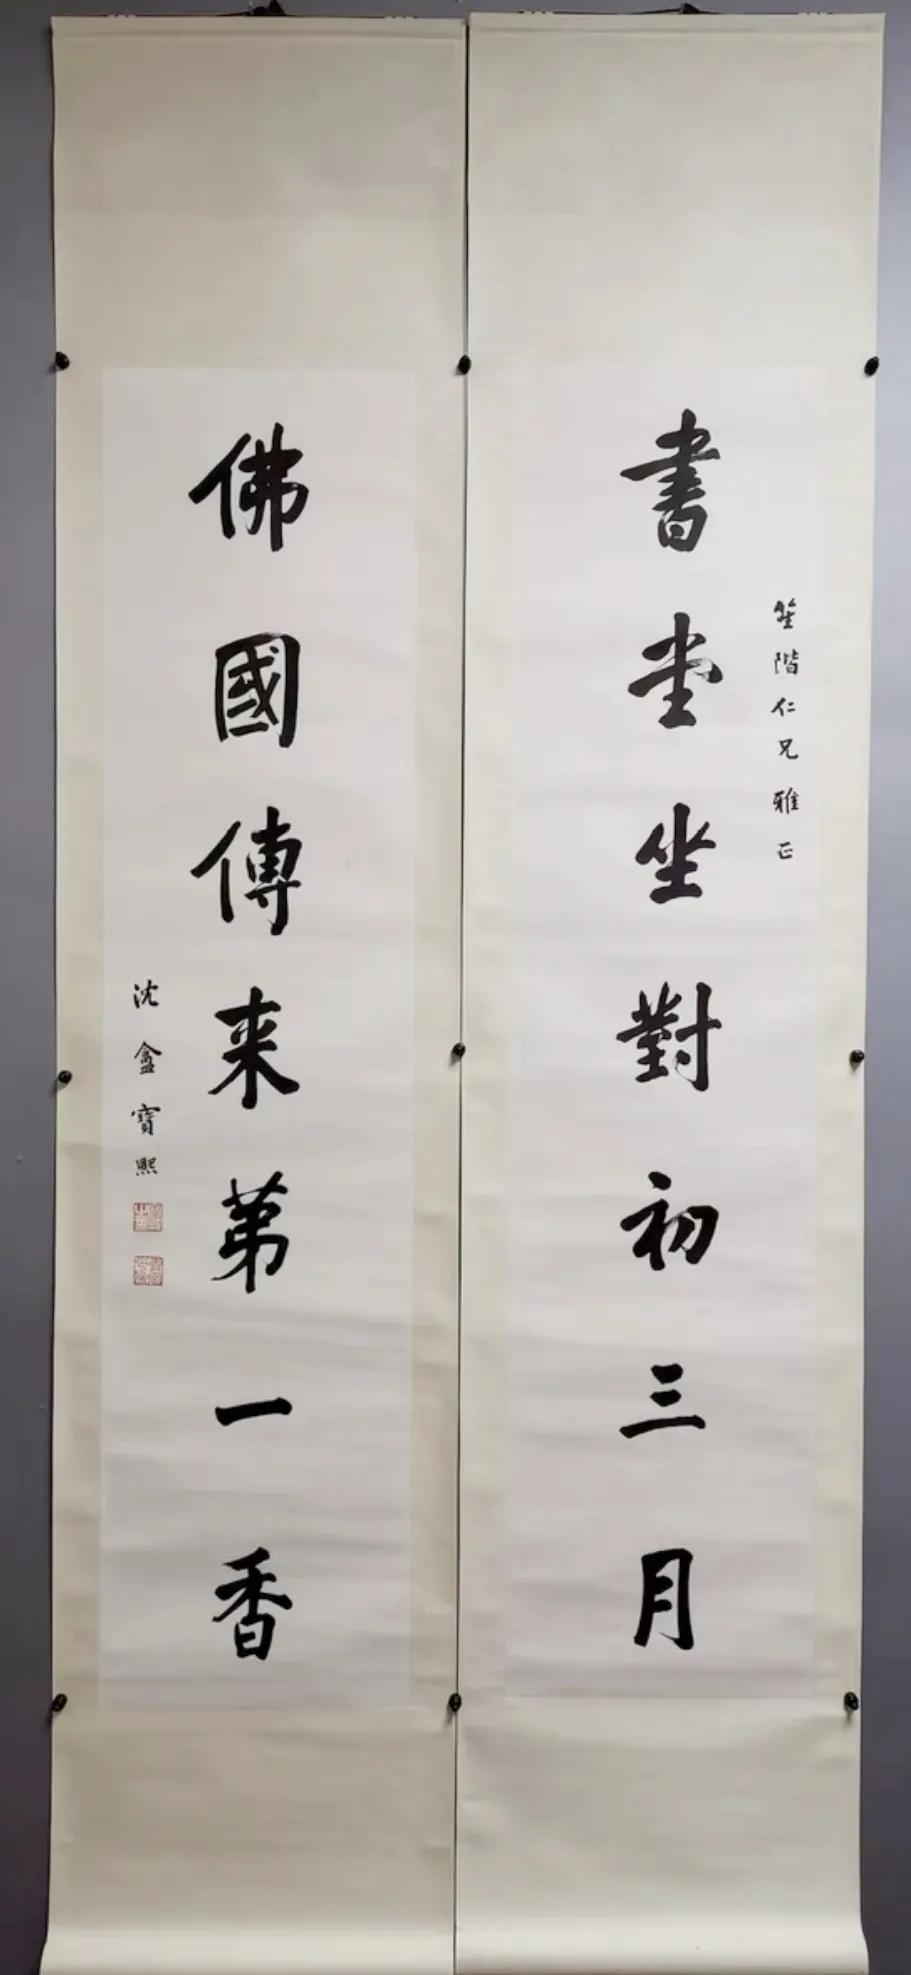 書堂坐對初三月
笙階仁兄雅正
佛國傳来第一香
沈盦寶熙